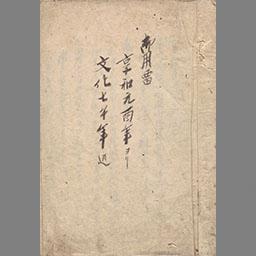 御用留
享和元酉年ヨリ
文化七午年迄